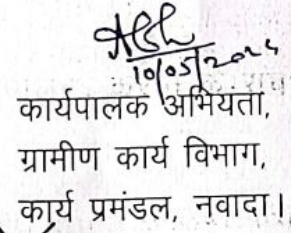 10/05/2024
कार्यपालक अभियंता,
ग्रामीण कार्य विभाग,
कार्य प्रमंडल, नवादा।